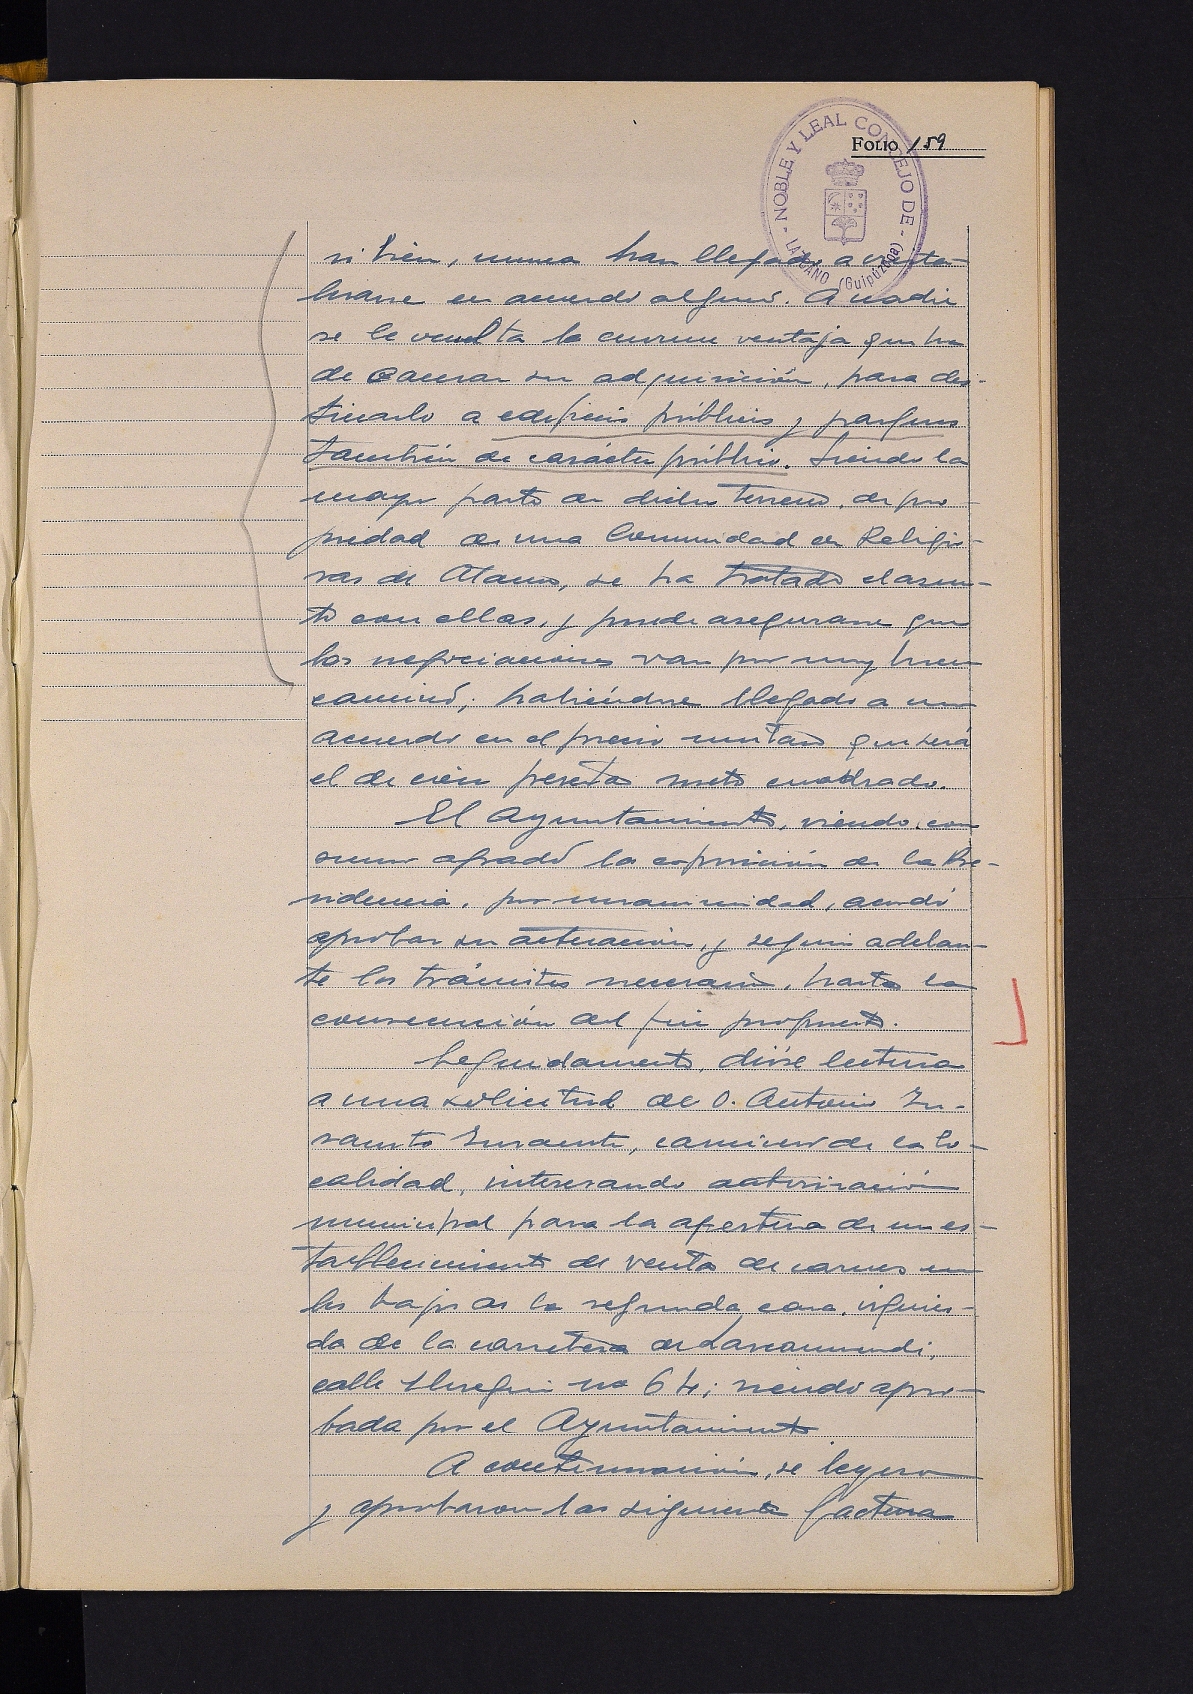 FOLIO 159
NOBLE Y LEAL CONCEJO DE
LAZCANO (Guipúzcoa)
si bien, nunca han llegado a crista-
lizarse en acuerdo alguno. A nadie
se le oculta la enorme ventaja que ha
de causar su adquisición, para des-
tinarlo a edificios públicos y parques
también de carácter público. Siendo la
mayor parte de dicho terreno, de pro-
piedad de una Comunidad de Religio-
sas de Ataun, se ha tratado el asun-
to con ellas, y puede asegurarse que
las negociaciones van por muy buen
camino; habiéndose llegado a un
acuerdo en el precio unitario que será
el de cien pesetas metro cuadrado.
El Ayuntamiento, viendo con
sumo agrado la exposición de la Pre-
sidencia, por unanimidad, acordó
aprobar su actuación, y seguir adelan-
te los trámites necesarios, hasta la
consecución del fin propuesto.
Seguidamente, dióse lectura
a una solicitud de D. Antonio In-
sausti, carnicero de la lo-
calidad, interesando autorización
municipal para la apertura de un es-
tablecimiento de venta de carnes en
los bajos de la segunda casa, izquier-
da de la carretera de Lazcaomendi,
calle no 64; siendo apro-
bada por el Ayuntamiento
A continuación, se leyeron
y aprobaron las siguientes facturas